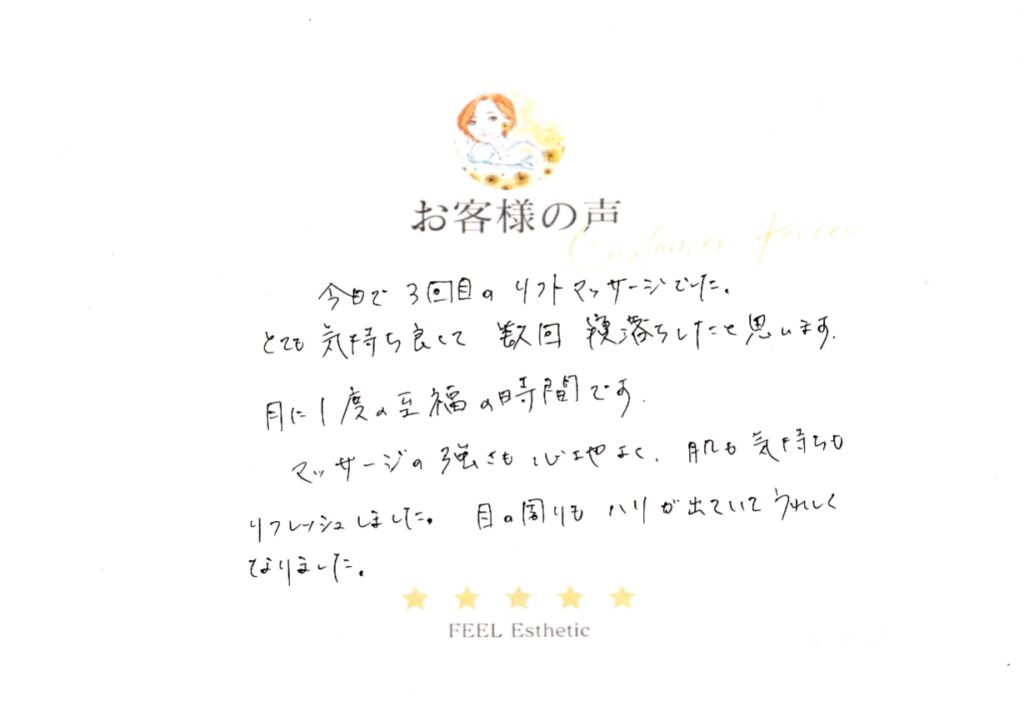 お客様の声
Customer Review
今日で3回目のリフトマッサージでした。
とても気持ち良くて 数回 寝落ちしたと思います.
月に1度の至福の時間です.
マッサージの強さも心地よく、肌も気持ちも
リフレッシュしました。 目の周りも ハリが出ていて うれしく
なりました。
FEEL Esthetic